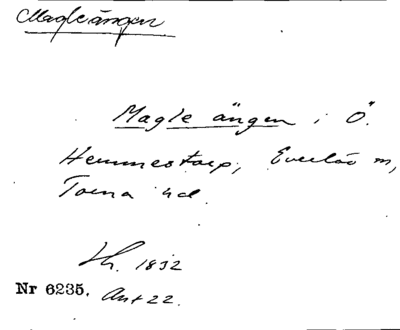 Magleängen
Magle ängen i Ö.
Hemmestorp, Everlöv sn,
Torna hd.
Lh. 1832
Nr 6235. Ant 22.